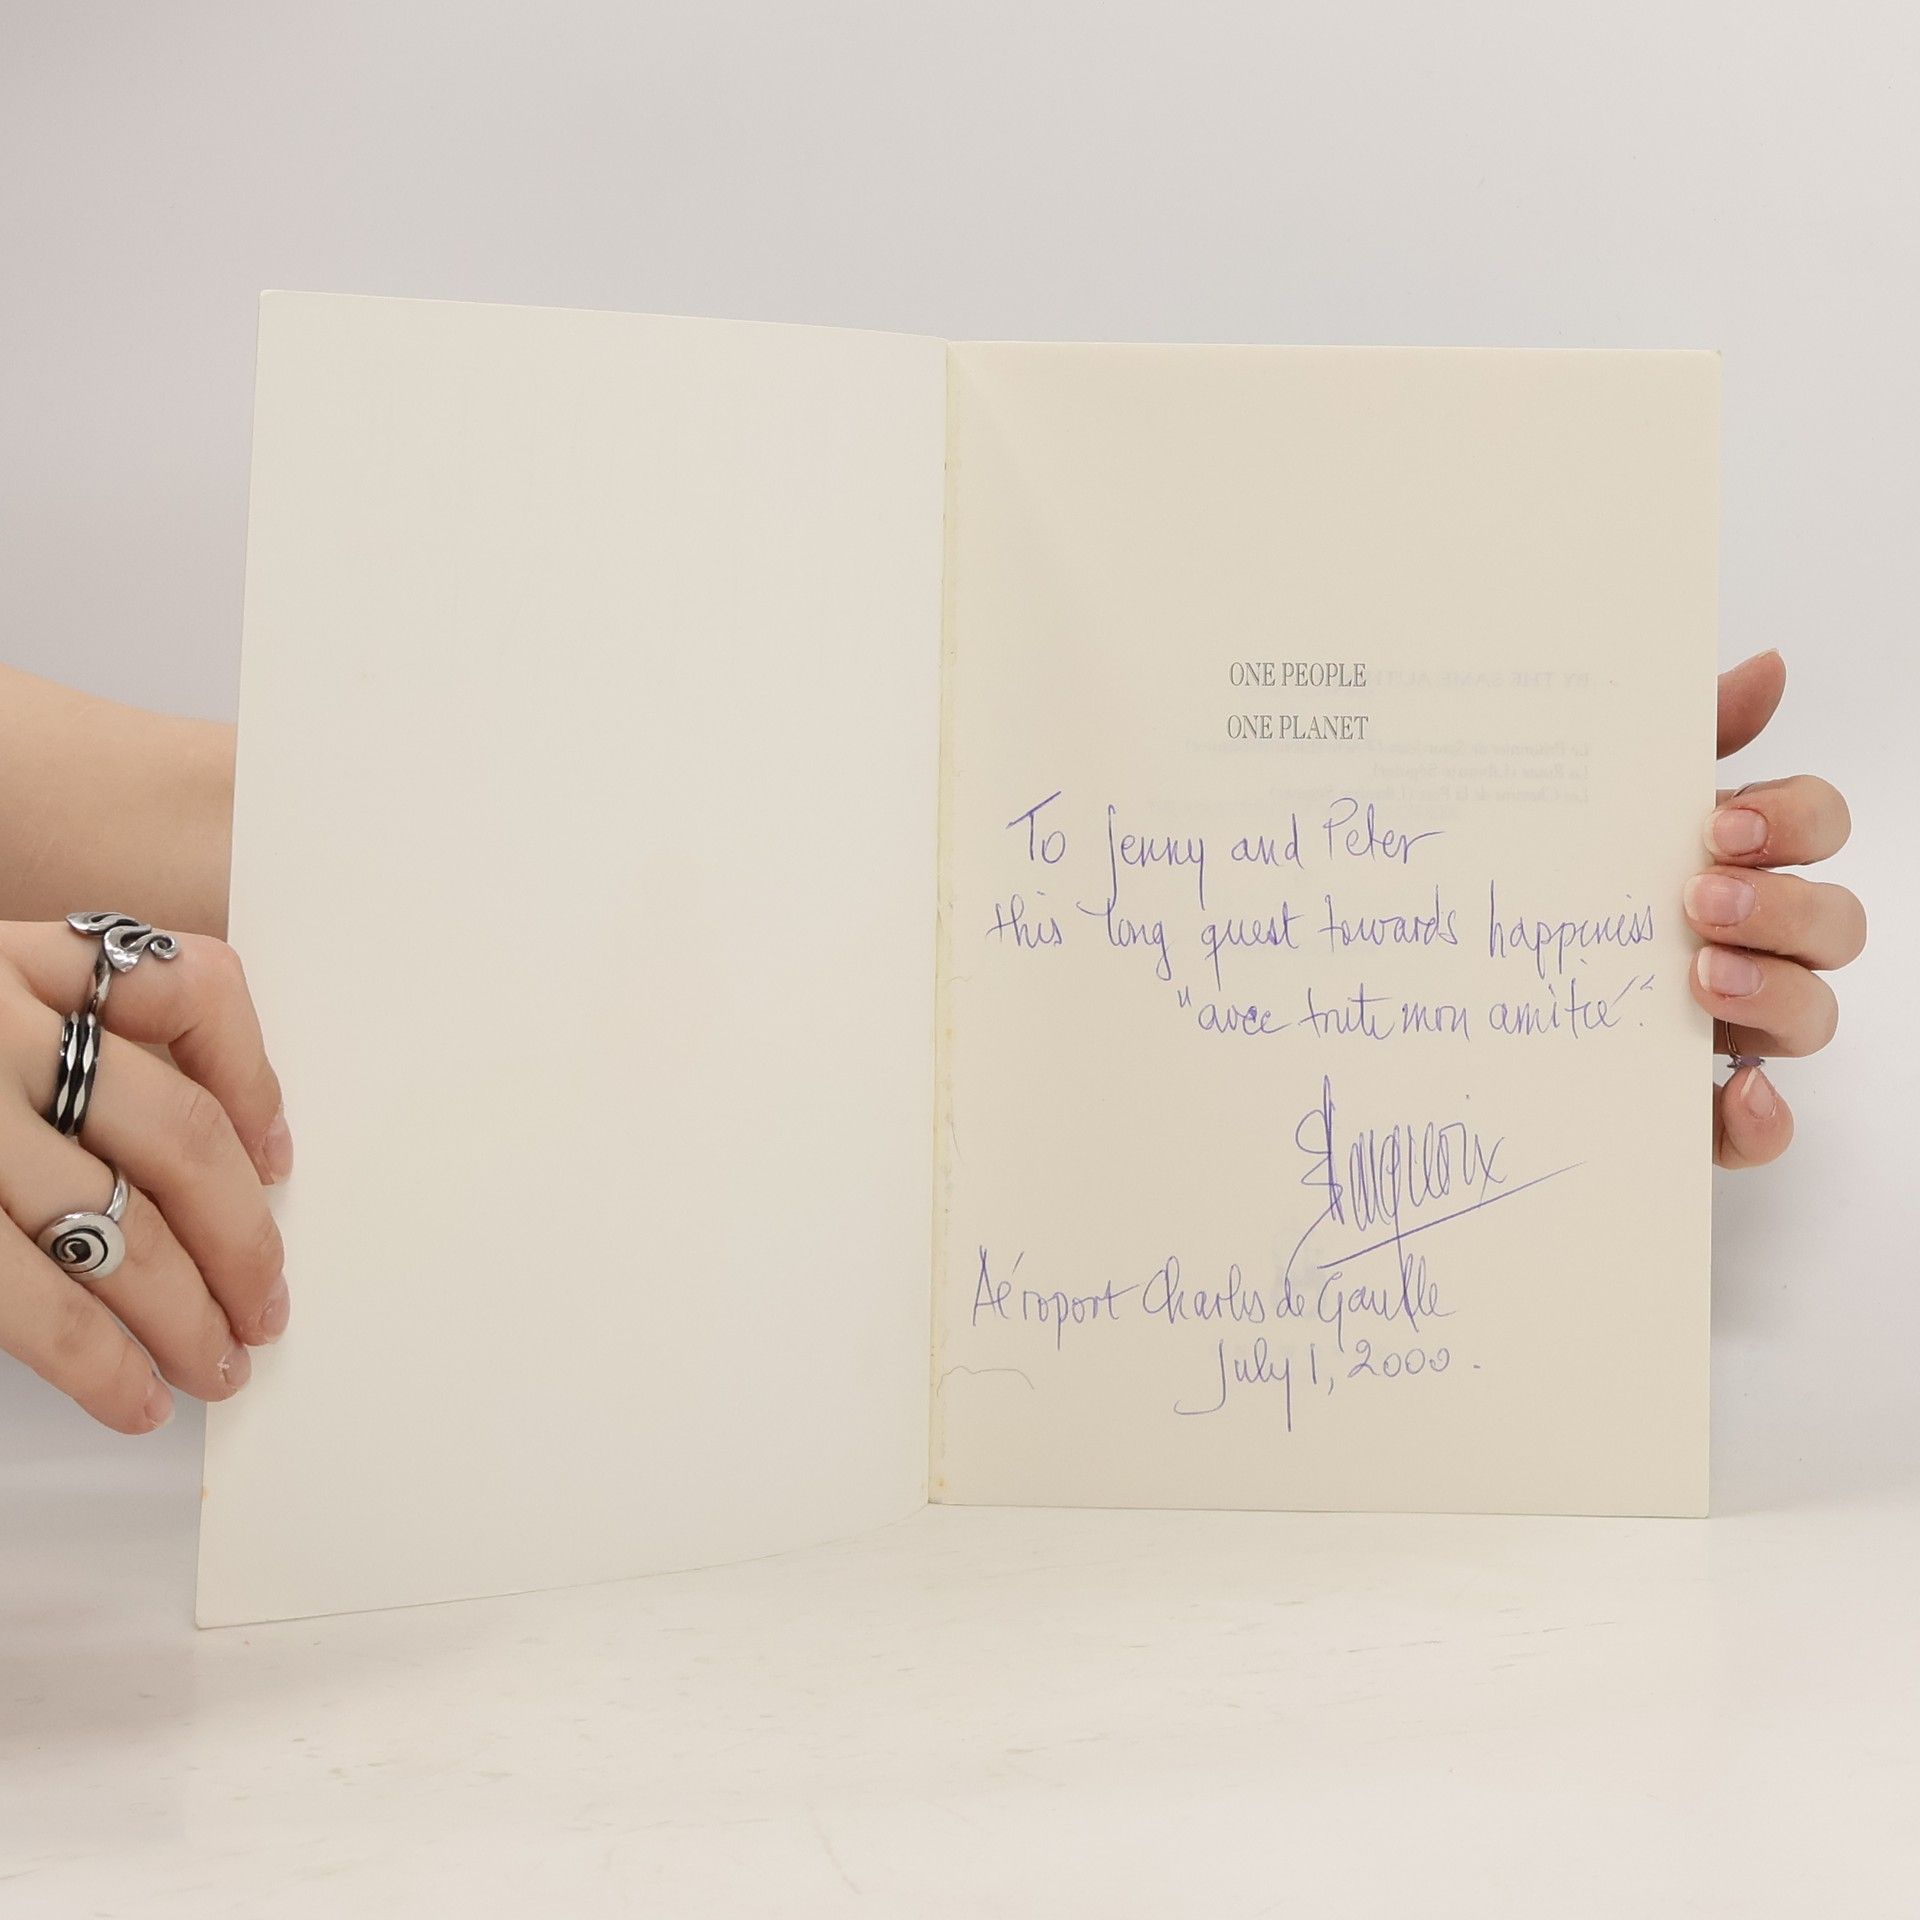 ONE PEOPLE
ONE PLANET
To Jenny and Peter
this long quest towards happiness
"avec toute mon amitié".
Aéroport Charles de Gaulle
July 1, 2000.